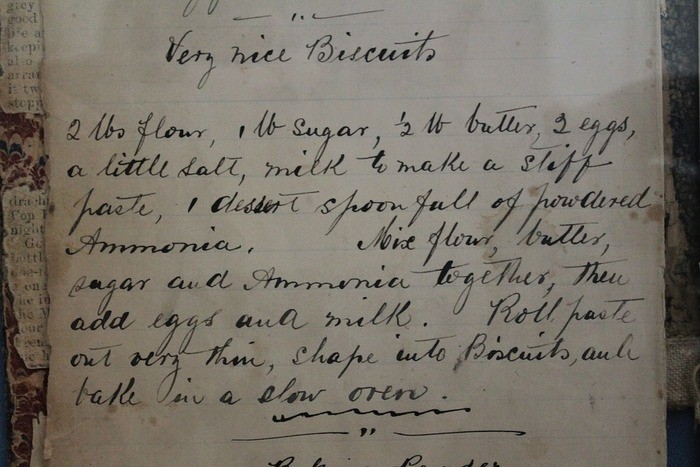 Very nice Biscuits
2 lbs flour, 1 lb sugar, ½ lb butter, 2 eggs,
a little salt, milk to make a stiff
paste, 1 dessert spoonfull of powdered
Ammonia. Mix flour, butter,
sugar and Ammonia together, then
add eggs and milk. Roll paste
out very thin, shape into Biscuits, and
bake in a slow oven.
Baking Powder